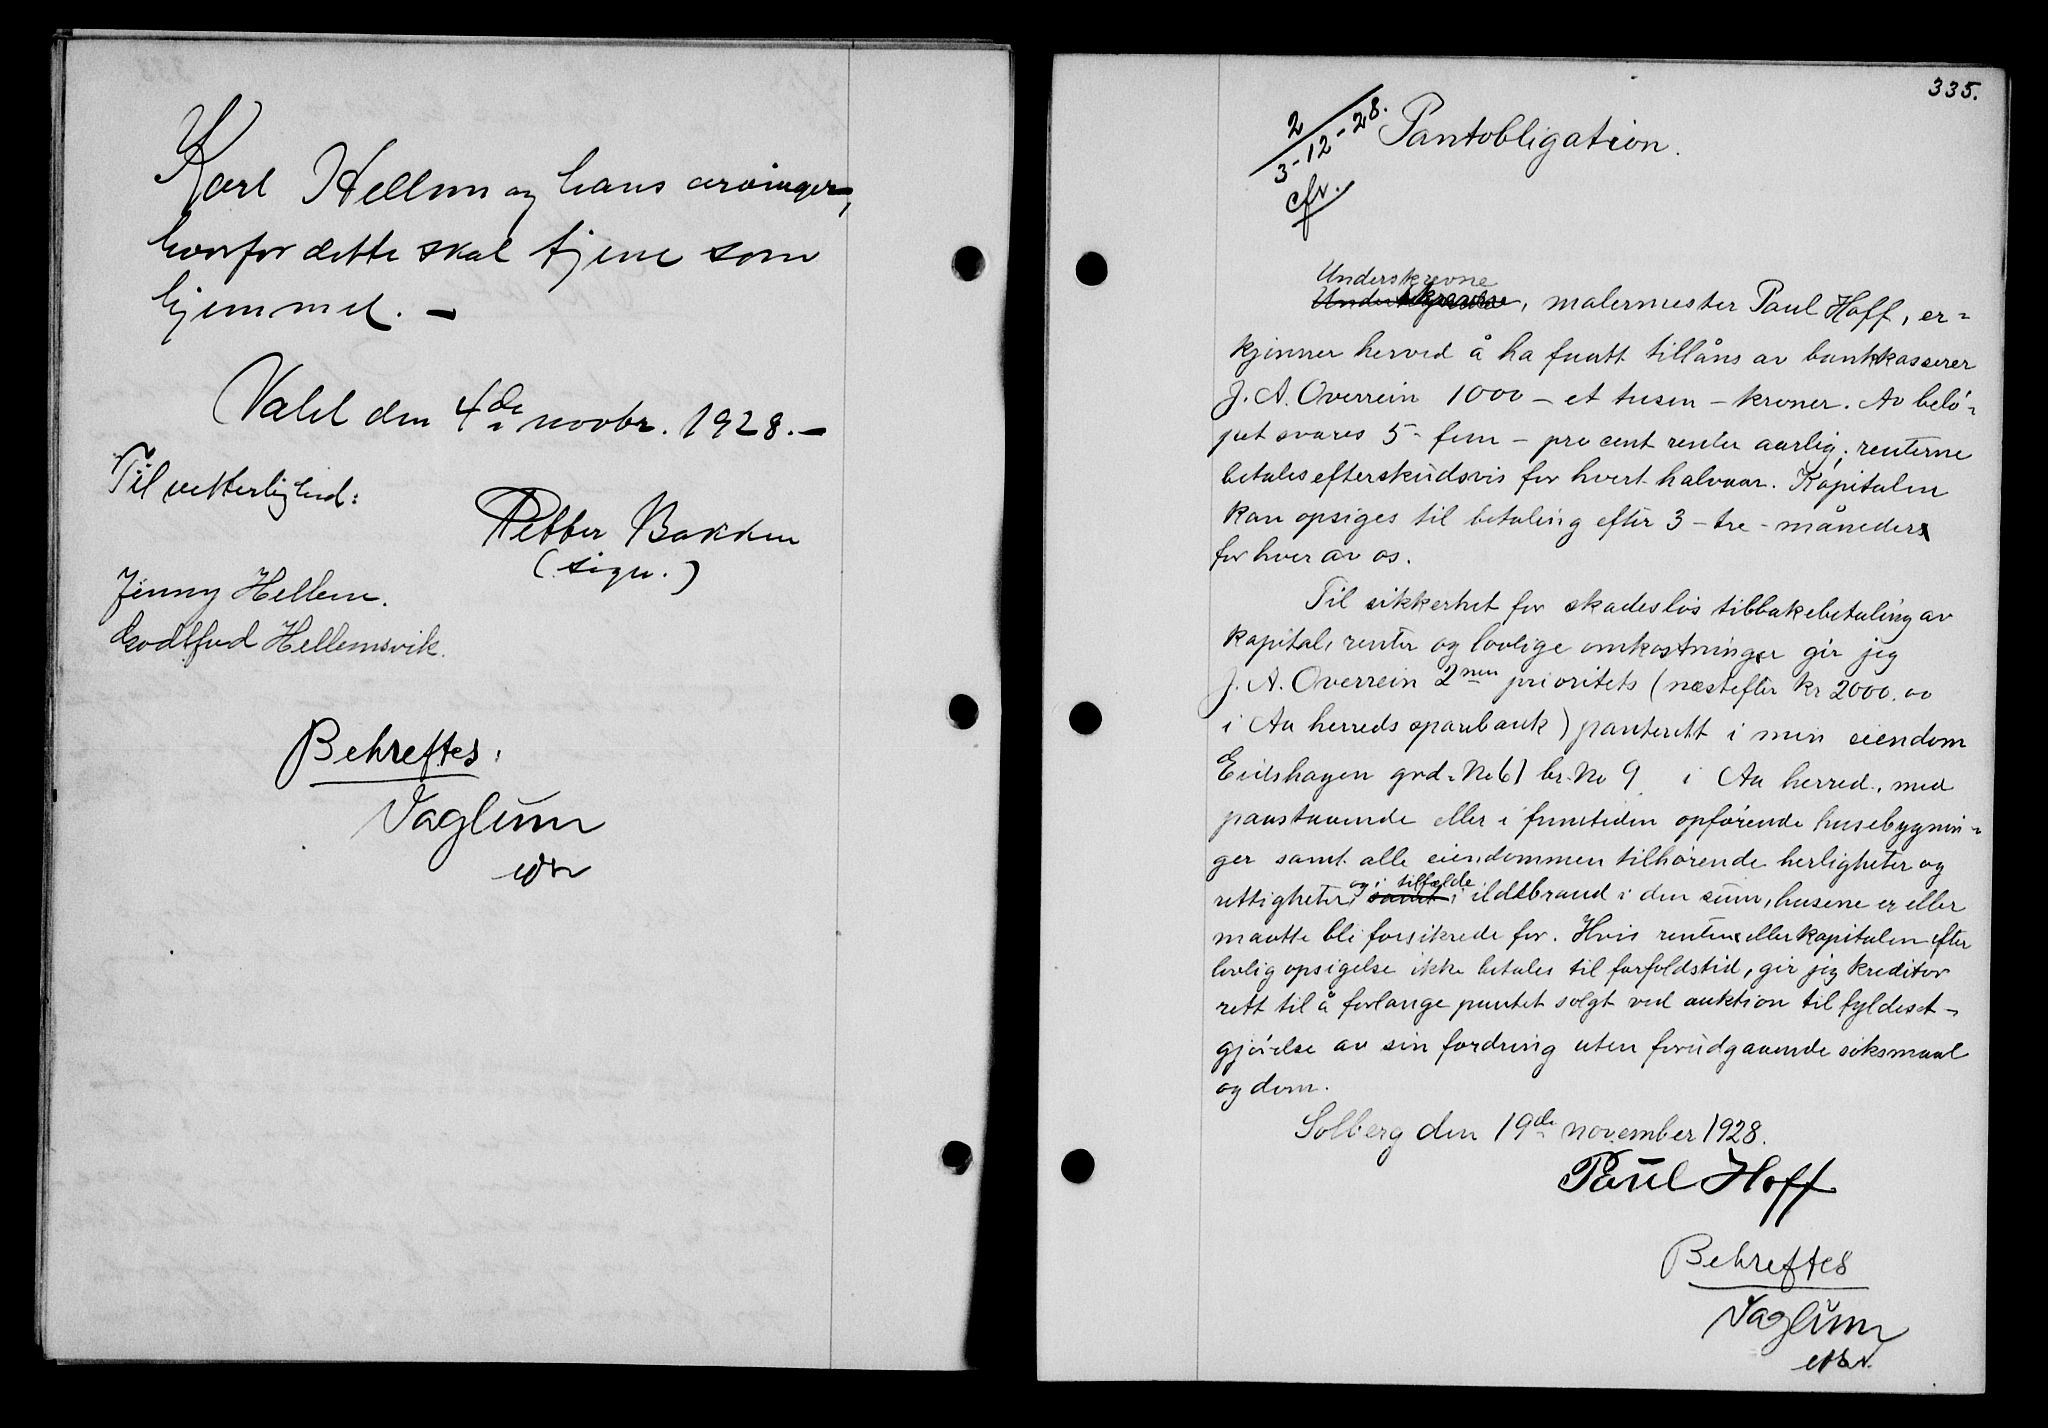 Karl Hellem og hans arvinger,
hvorfor dette skal tjene som
hjemmel. —
Valel den 4de novbr. 1928. —
Til vitterlighed:
Petter Bakken
(sign.)
Jenny Hellem.
Godtfred Hellemsvik.
Behreftes:
Vaglum
335.
2
3-12-28.
cfr.
Pantobligation.
Underskrevne
, malermester Paul Hoff, er-
kjenner herved å ha faatt tillåns av bankkasserer
J. A. Overrein 1000 — et tusen — kroner. Av belö-
pet svares 5 - fem - procent renter aarlig; renterne
betales efterskudsvis for hvert halvaar. Kapitalen
kan opsiges til betaling efter 3 - tre - måneder
for hver av os.
Til sikkerhet for skadeslös tilbakebetaling av
kapital, renter og lovlige omkostninger gir jeg
J. A. Overrein 2nen prioritets (næstefter kr 2000.00
i Aa herreds sparebank) panterett i min eiendom
Eidshagen grd. No 61 br. No 9 i Aa herred, med
paastaaende eller i fremtiden opförende husebygnin-
ger samt alle eiendommen tilhörende herligheter og
rettigheter, samt og i tilfælde i ildsbrand i den sum, husene er eller
maatte bli forsikrede for. Hvis renter eller kapitalen efter
lovlig opsigelse ikke betales til forfaldstid, gir jeg kreditor
rett til å forlange pantet solgt ved auktion til fyldest-
gjörelse av sin fordring uten forudgaaende söksmaal
og dom.
Solberg den 19de november 1928.
Paul Hoff
Behreftes
Vaglum